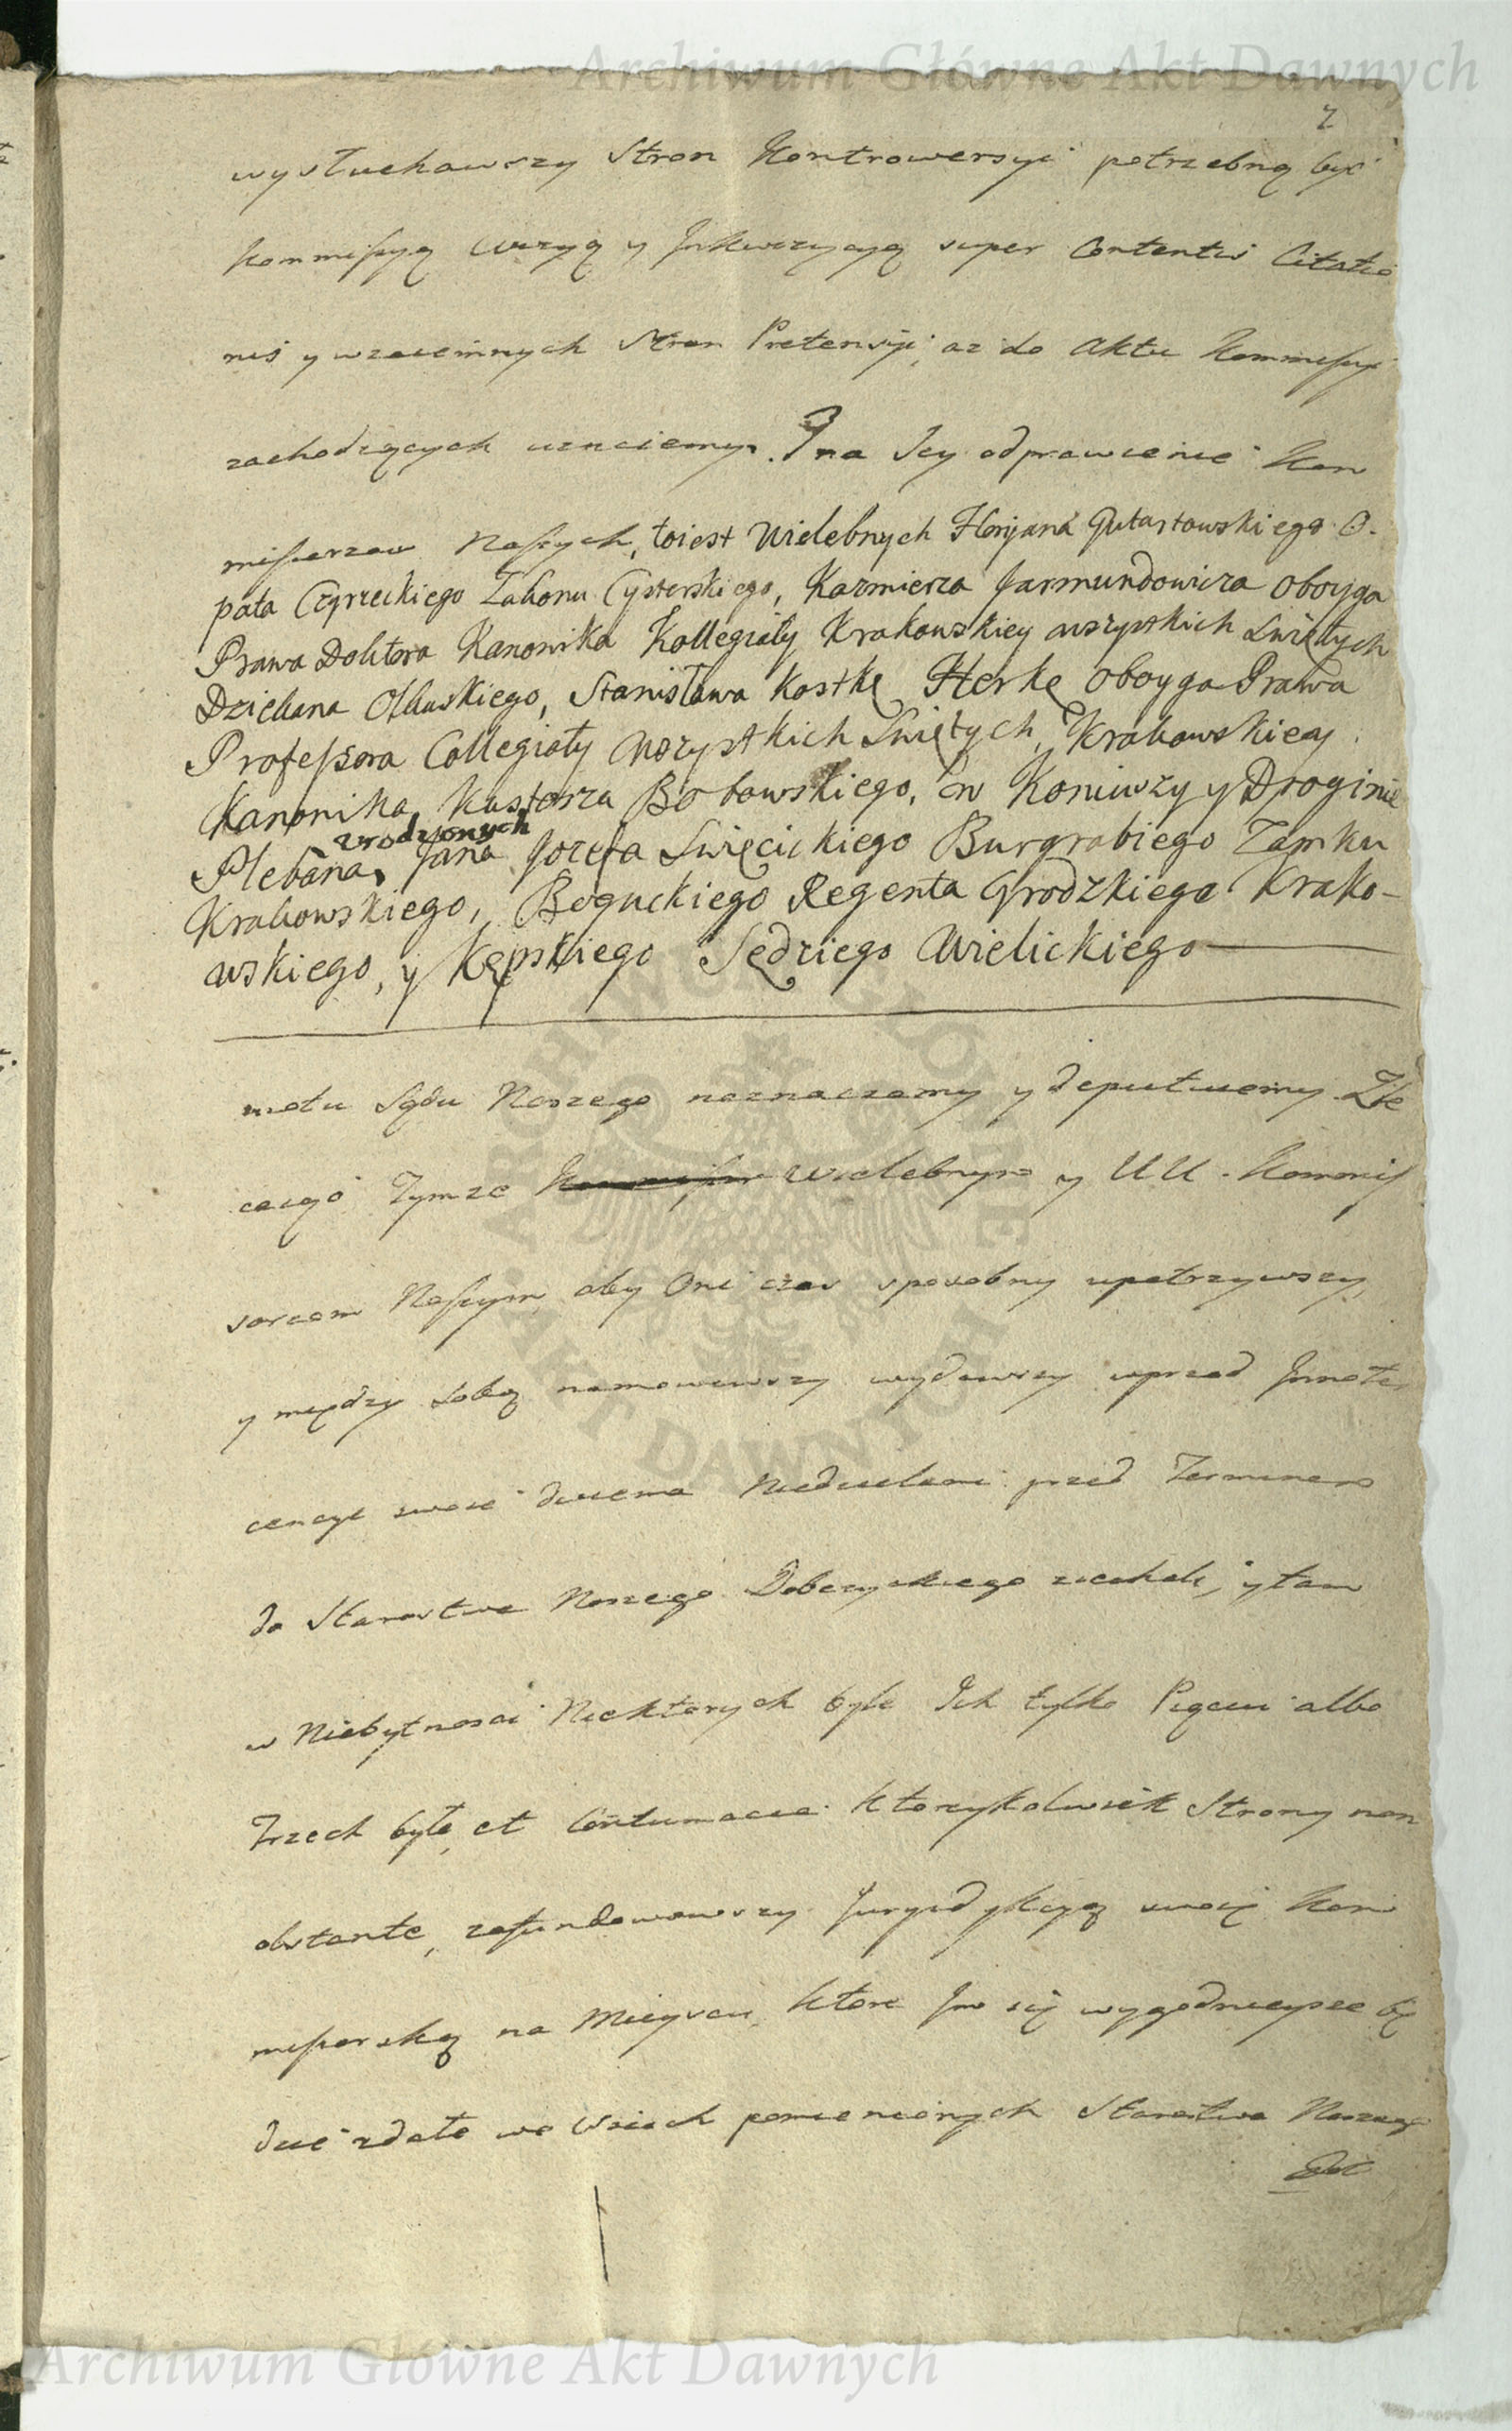 Archiwum Główne Akt Dawnych
2
wysłuchawszy Stron Kontrowersyi potrzebną być
Kommissyą Wizyą y Inkwizycyą super Contentis Citatio
nis y wzaiemnych Stron Pretensyi, az do Aktu Kommissyi
zachodzących uznaiemy. I na Jey odprawienie Kom
missarzow Naszych, toiest Wielebnych Floryana Gutartowskiego O-
pata Czyrzeckiego Zakonu Cysterskiego, Kazmierza Jarmundowicza oboyga
Prawa Doktora Kanonika Kollegiaty Krakowskiey wszystkich Swiętych
Dziekana Olkuskiego, Stanisława Kostkę Herkę oboyga Prawa
Professora Collegiaty Wszystkich Swiętych, Krakowskiey
Kanonika, Kustorza Bobowskiego, w Koniuszy y Droginie
urodzonych
Plebana, Jana Jozefa Swięcickiego Burgrabiego Zamku
Krakowskiego, Boguckiego Regenta Grodzkiego Krako-
wskiego, y Kępskiego Sędziego Wielickiego
Sądu Naszego naznaczamy y deputuiemy. Zle
caiąc Tymze Wielebnym y UU. Kommis
sarzom Naszym, aby Oni czas sposobny upatrzywszy,
y między sobą namowiwszy wydawszy wprzod Innotes
cencye swoie dwiema Niedzielami przed Terminem
do Starostwa Naszego Dobczyckiego ziechali, y tam
w Niebytnosci Niektorych byle Ich tylko Pięciu albo
Trzech było, et Contumacia ktorzykolwiek Strony non
obstante, zafundowawszy Jurysdykcyą swoię Kom
missarską na Mieyscu, ktore Im się wygodnieysze bę
dzie zdało we Wsiach pomienionych Starostwa Naszego
ARCHIWUM GŁÓWNE AKT DAWNYCH
Archiwum Główne Akt Dawnych